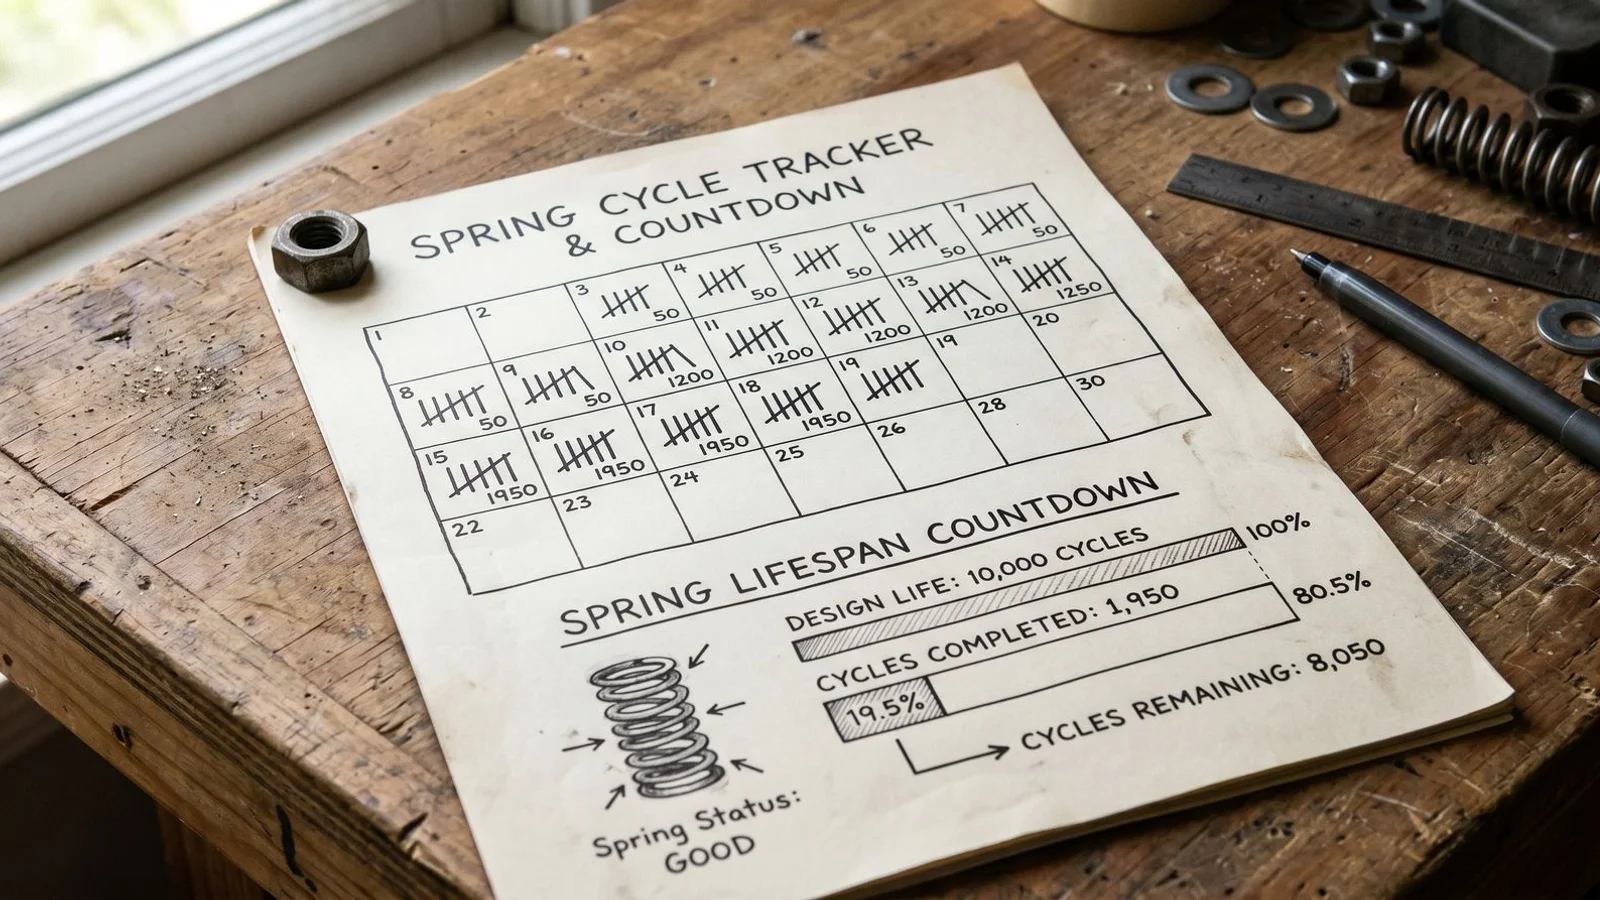 SPRING CYCLE TRACKER
& COUNTDOWN
1 2 3 50 4 50 5 50 6 50 7 50
8 50 9 50 10 1200 11 1200 12 1200 13 1200 14 1250
15 1950 16 1950 17 1950 18 1950 19 19 20
22 23 24 25 26 28 30
SPRING LIFESPAN COUNTDOWN
DESIGN LIFE: 10,000 CYCLES 100%
CYCLES COMPLETED: 1,950 80.5%
19.5%
CYCLES REMAINING: 8,050
Spring Status:
GOOD